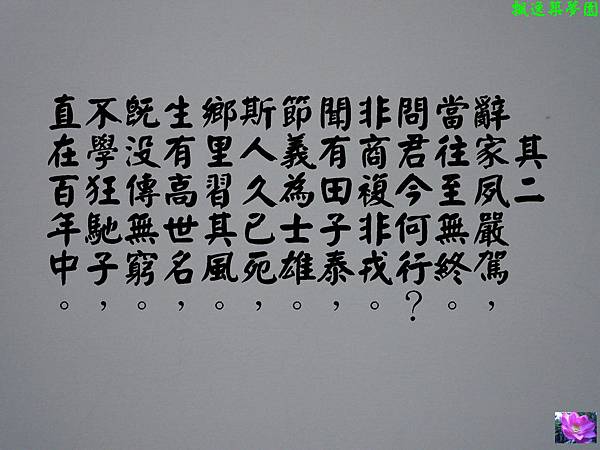 飄逸築夢園
其二
辭家夙嚴駕，
當往至無終。
問君今何行？
非商複非戎。
聞有田子泰，
節義為士雄。
斯人久已死，
鄉里習其風。
生有高世名，
既沒傳無窮。
不學狂馳子，
直在百年中。